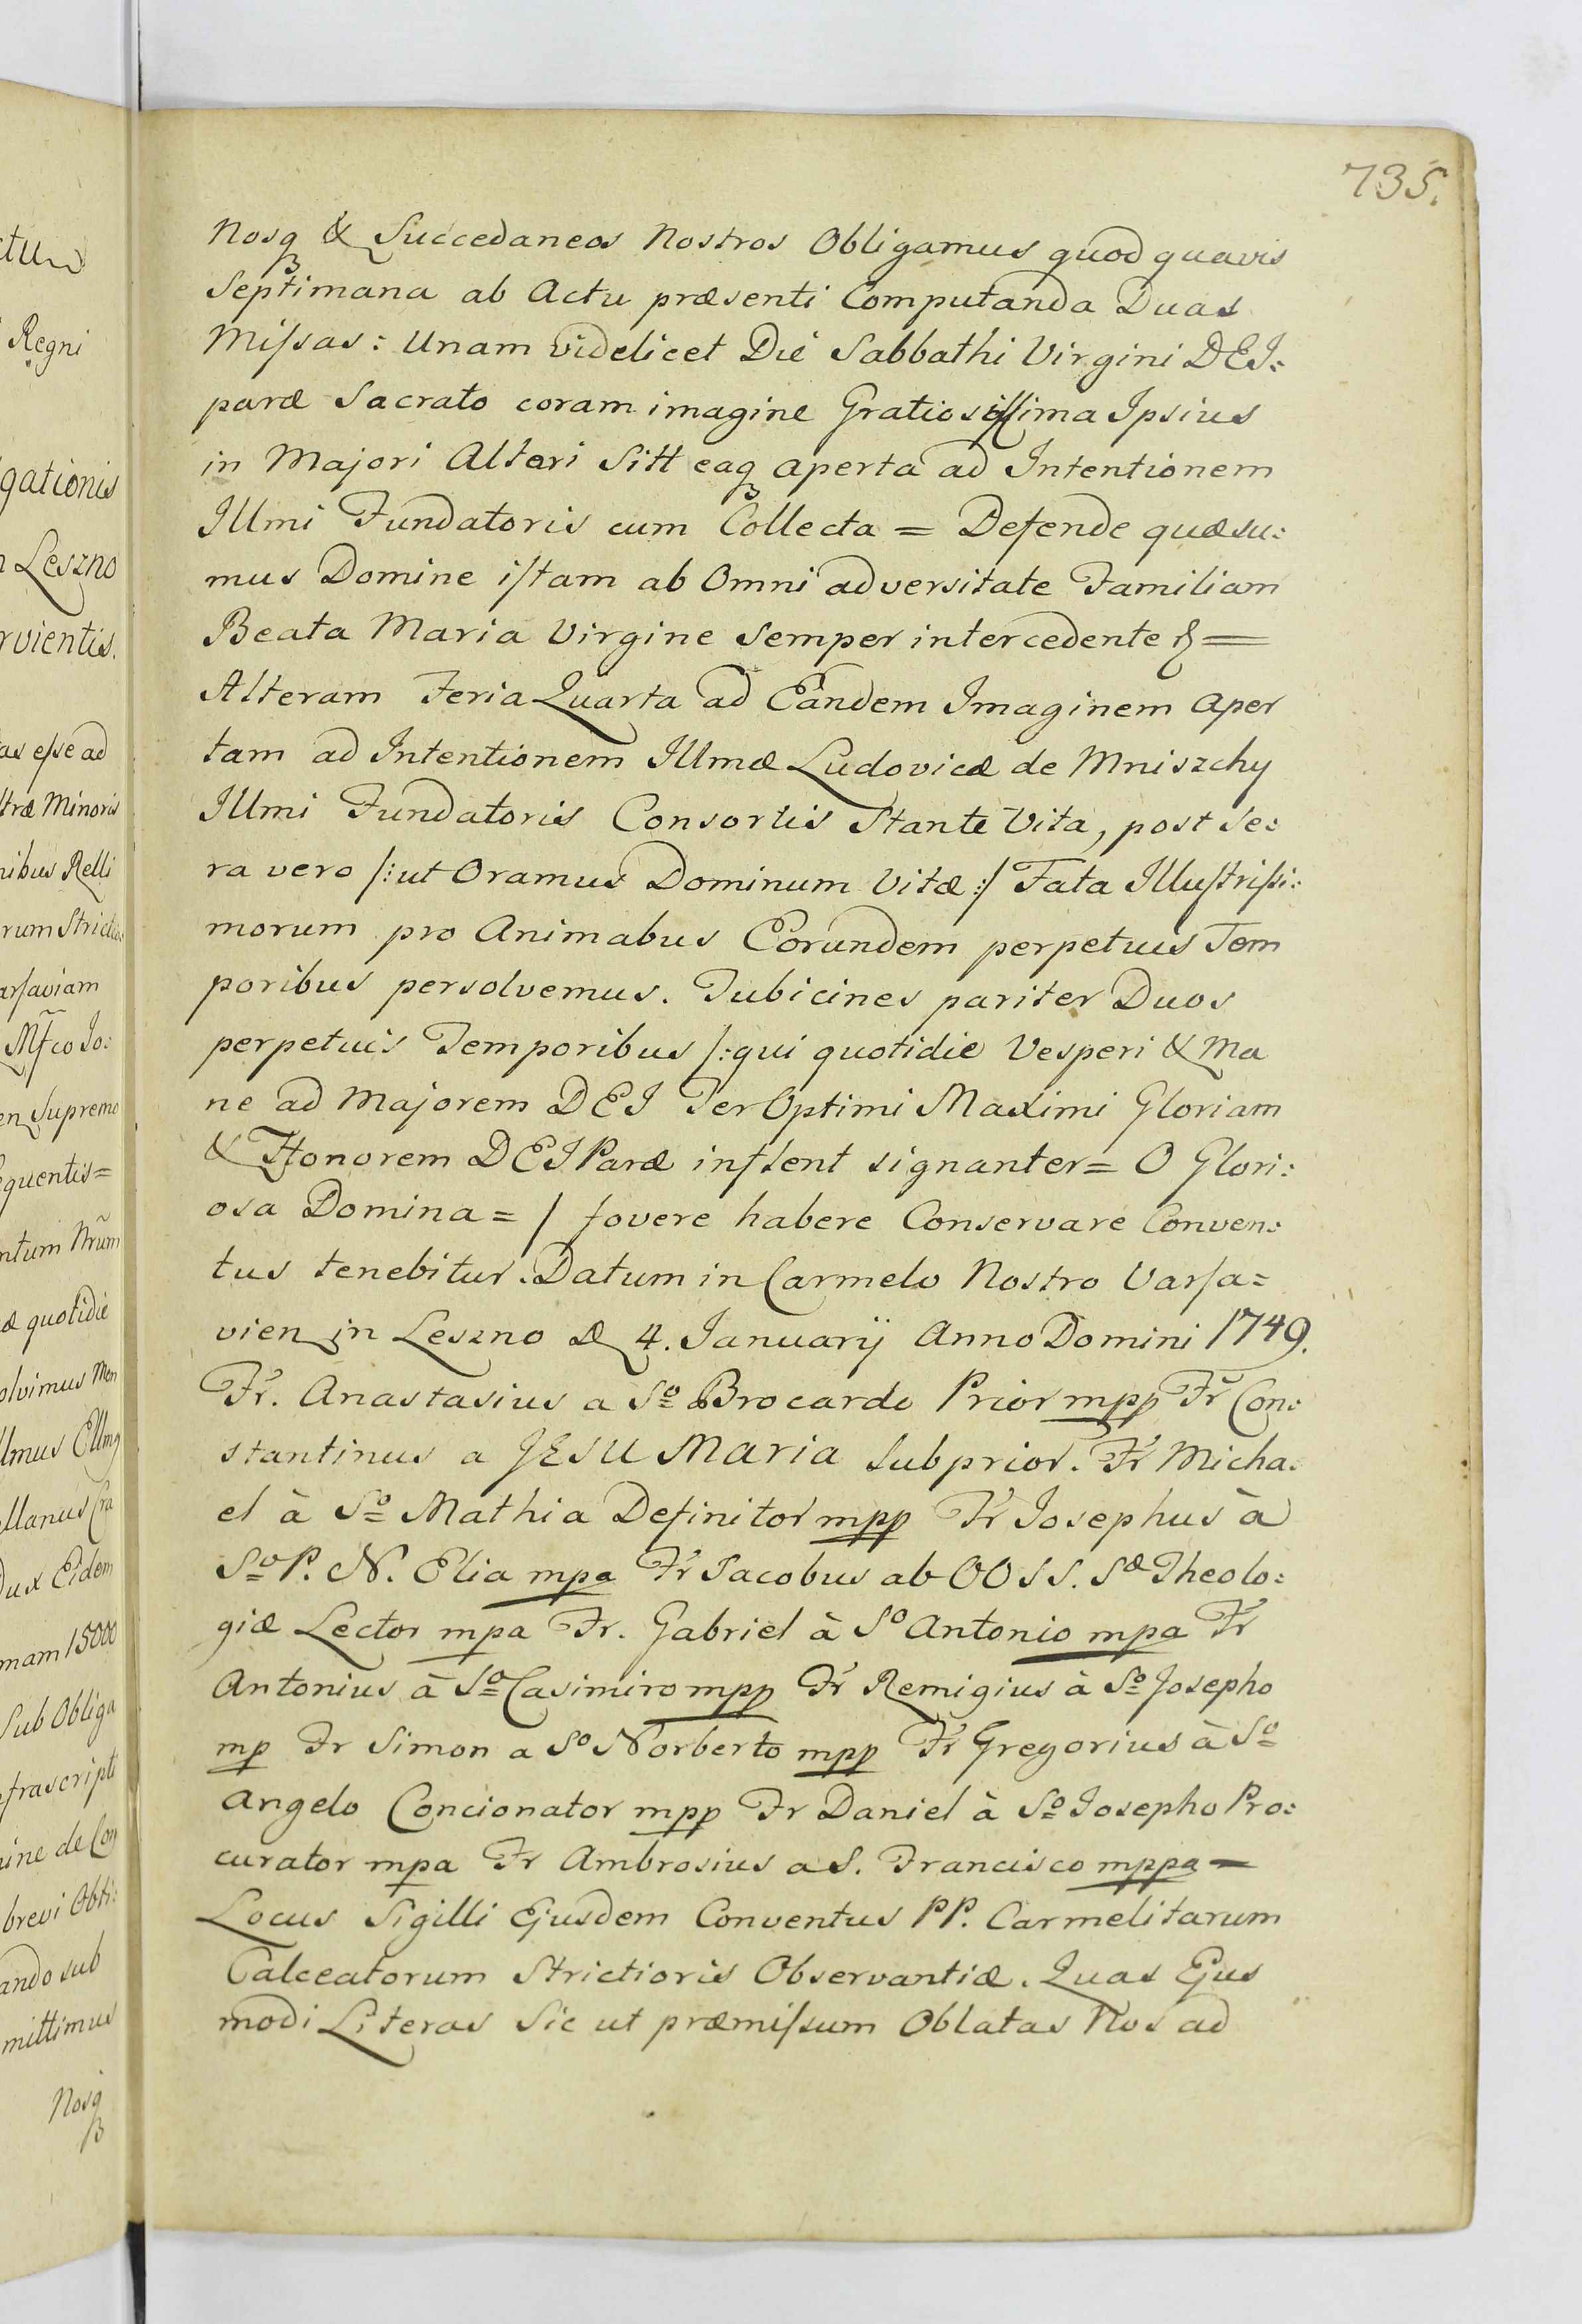 735.
Nosq & Succedaneos Nostros Obligamus quod quavis
Septimana ab Actu præsenti Computanda Duas
Missas: Unam videlicet Die Sabbathi Virgini DEI:
paræ Sacrato coram imagine Gratiosissima Ipsius
in Majori Altari Sitt eaq aperta ad Intentionem
Illmi Fundatoris cum Collecta = Defende quæsu:
mus Domine istam ab Omni adversitate Familiam
Beata Maria Virgine Semper intercedente =
Alteram Feria Quarta ad Eandem Imaginem aper
tam ad Intentionem Illmæ Ludovicæ de Mniszchy
Illmi Fundatoris Consortis Stante Vita, post Se:
ra vero /:ut Oramus Dominum Vitæ:/ Fata Illustrissi:
morum pro Animabus Eorundem perpetuis Tem
poribus persolvemus. Tubicines pariter Duos
perpetuis Temporibus /:qui quotidie Vesperi & Ma
ne ad Majorem DEI Ter Optimi Maximi Gloriam
& Honorem DEI Paræ inflent signanter = O Glori:
osa Domina = / fovere habere Conservare Conven:
tus tenebitur. Datum in Carmelo Nostro Varsa=
vien in Leszno D 4. Januarij Anno Domini 1749.
Fr. Anastasius a So Brocardo Prior mpp Fr Con:
stantinus a JESU Maria Subprior. Fr Micha:
el à So Mathia Definitor mpp Fr Josephus à
So P. N. Elia mpa Fr Jacobus ab OO SS. Sæ Theolo:
giæ Lector mpa Fr. Gabriel à So Antonio mpa Fr
Antonius à So Casimiro mpp Fr Remigius à So Josepho
mp Fr Simon a So Norberto mpp Fr Gregorius à So
Angelo Concionator mpp Fr Daniel à So Josepho Pro:
curator mpa Fr Ambrosius a S. Francisco mppa =
Locus Sigilli Ejusdem Conventus PP. Carmelitarum
Calceatorum Strictioris Observantiæ. Quas Ejus
modi Literas Sic ut præmissum Oblatas Nos ad
Regni
gationis
Leszno
rvientis.
as esse ad
træ Minoris
nibus Relli
rum
arsaviam
en Supremo
quentis=
ntum Nrum
æ quotidie
olvimus
llanus
Dux Eidem
mam 15000
Sub Obliga
frascripti
ine de Con
brevi Obti:
ando sub
mittimus
Nosq